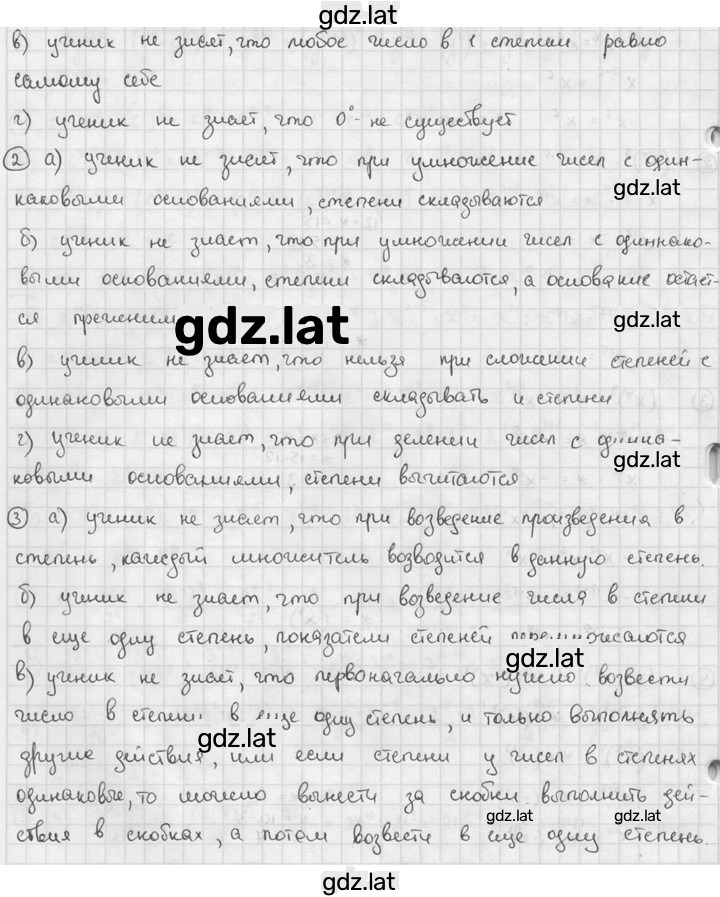 gdz.lat
в) ученик не знает, что любое число в 1 степени равно
самому себе
г) ученик не знает, что 0⁰ - не существует
② а) ученик не знает, что при умножение чисел с один-
gdz.lat
каковыми основаниями, степени складываются
б) ученик не знает, что при умножении чисел с одиннако-
выми основаниями, степени складываются, а основание остает-
ся прежним
gdz.lat
gdz.lat
в) ученик не знает, что нельзя при сложении степеней с
одинаковыми основаниями складывать и степени
г) ученик не знает, что при делении чисел с одина-
gdz.lat
ковыми основаниями, степени вычитаются
③ а) ученик не знает, что при возведение произведения в
степень, каждый множитель возводится в данную степень.
б) ученик не знает, что при возведение числа в степени
в еще одну степень, показатели степеней перемножаются
gdz.lat
в) ученик не знает, что первоначально нужно возвести
число в степени в еще одну степень, и только выполнять
gdz.lat
другие действия, или если степени у чисел в степенях
одинаковые, то можно вынести за скобки выполнить дей-
gdz.lat
gdz.lat
ствия в скобках, а потом возвести в еще одну степень.
gdz.lat